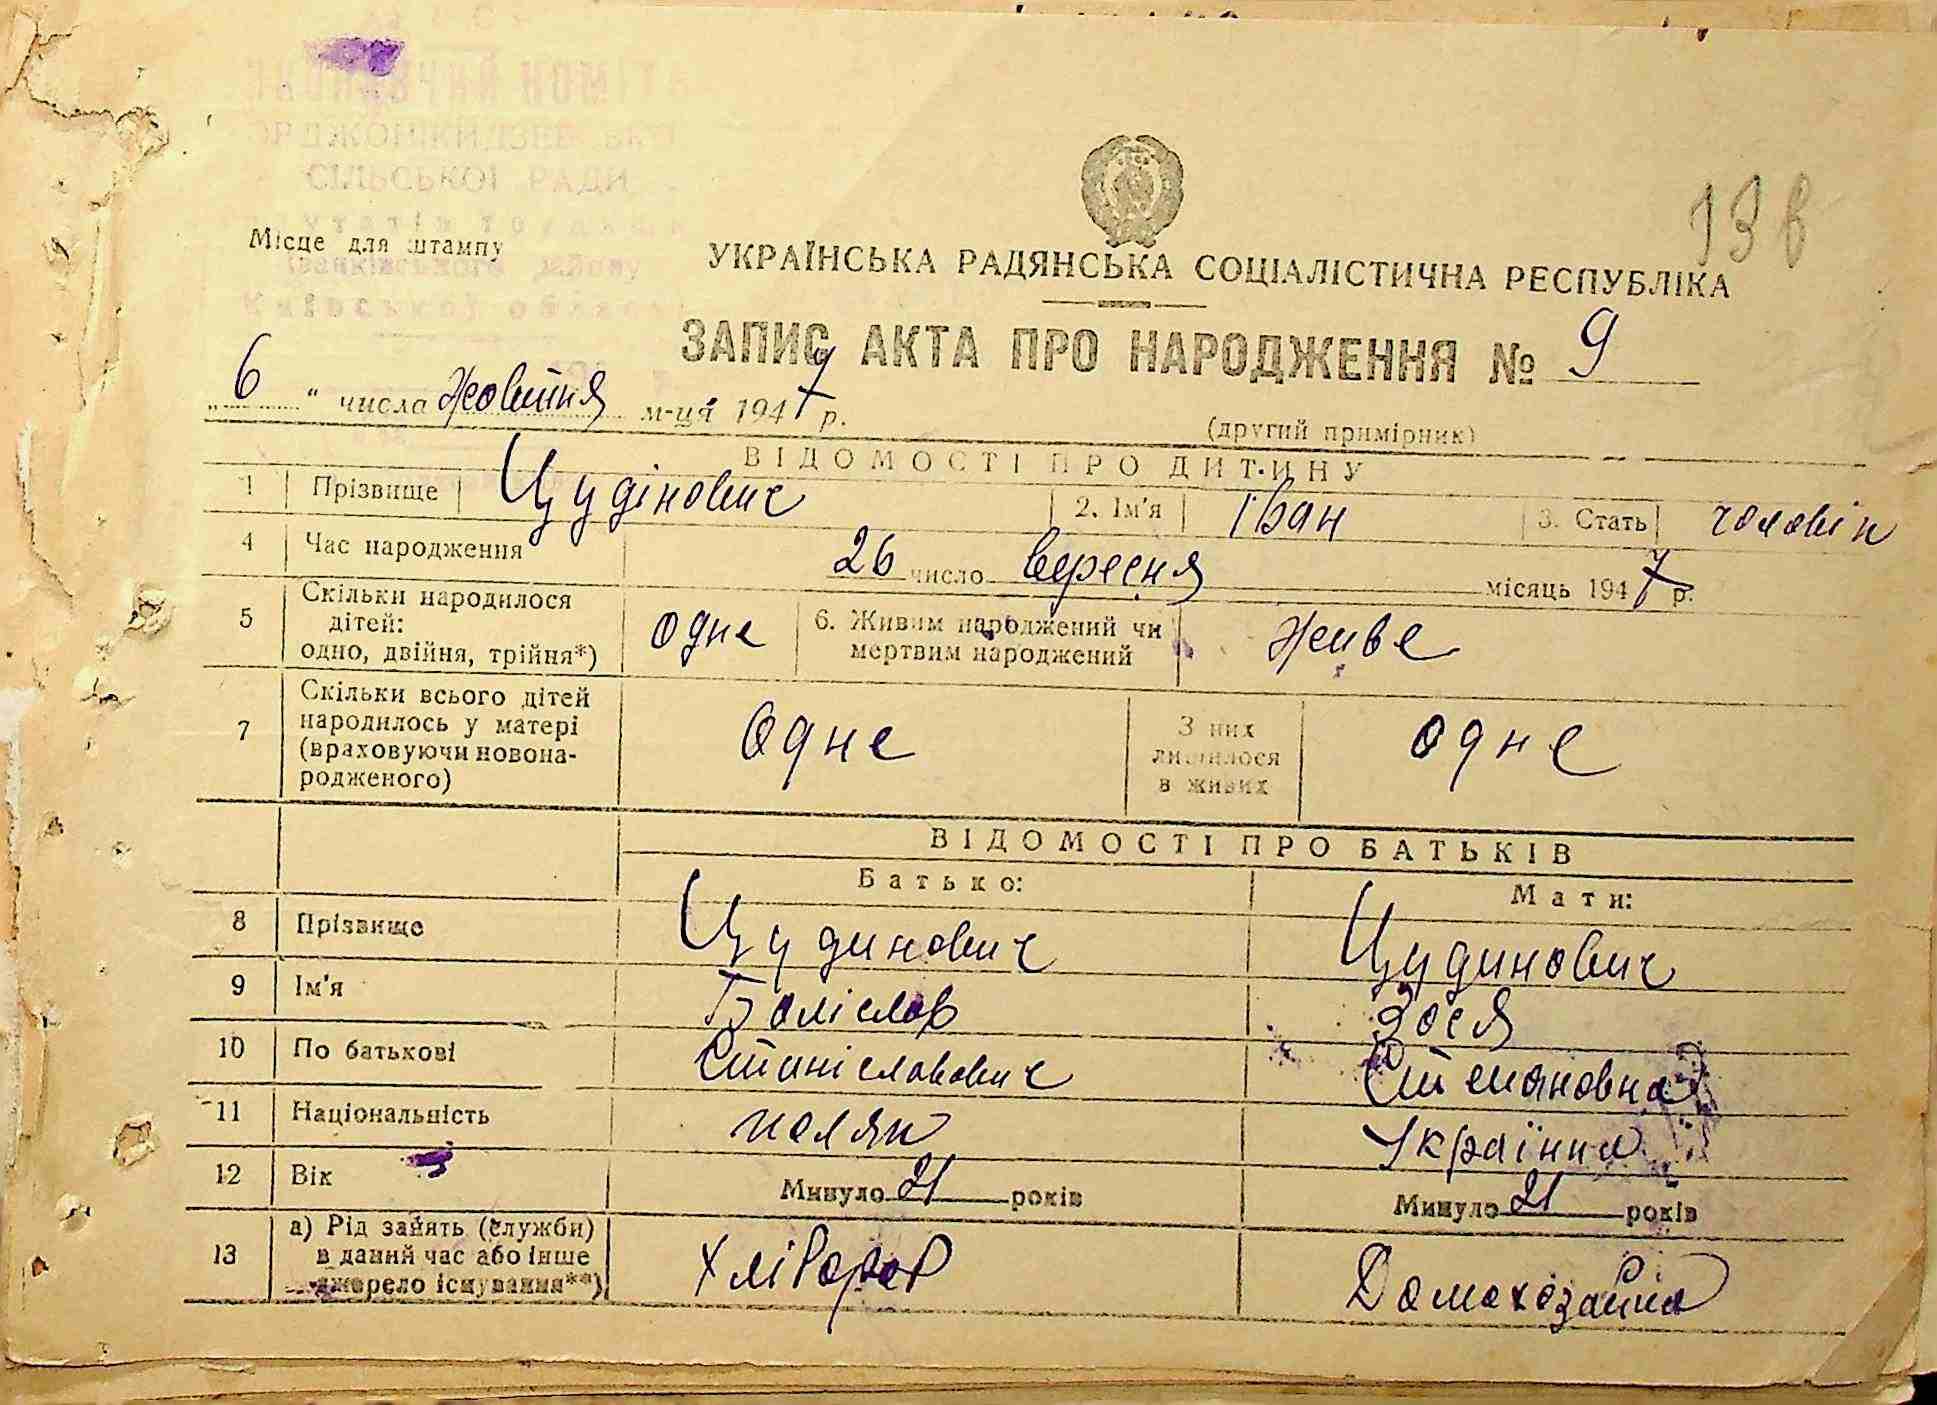 138
СІЛЬСЬКОЇ РАДИ
Місце для штампу
району
Київської області
УКРАЇНСЬКА РАДЯНСЬКА СОЦІАЛІСТИЧНА РЕСПУБЛІКА
ЗАПИС АКТА ПРО НАРОДЖЕННЯ № 9
„6“ числа Жовтня м-ця 1947 р.
(другий примірник)
ВІДОМОСТІ ПРО ДИТИНУ
1 Прізвище Цудінович 2. Ім'я Іван 3. Стать чоловік
4 Час народження 26 число вересня місяць 1947 р.
5 Скільки народилося дітей: одно, двійня, трійня*) одне 6. Живим народжений чи мертвим народжений живе
7 Скільки всього дітей народилось у матері (враховуючи новонародженого) Одне З них лишилося в живих одне
ВІДОМОСТІ ПРО БАТЬКІВ
Батько: Мати:
8 Прізвище Цудинович Цудинович
9 Ім'яБоліслав Зося
10 По батькові Станіславович Степановна
11 Національність поляк Українка
12 Вік Минуло 21 років Минуло 21 років
13 а) Рід занять (служби) в даний час або інше джерело існування**) Хлібороб Домохозайка